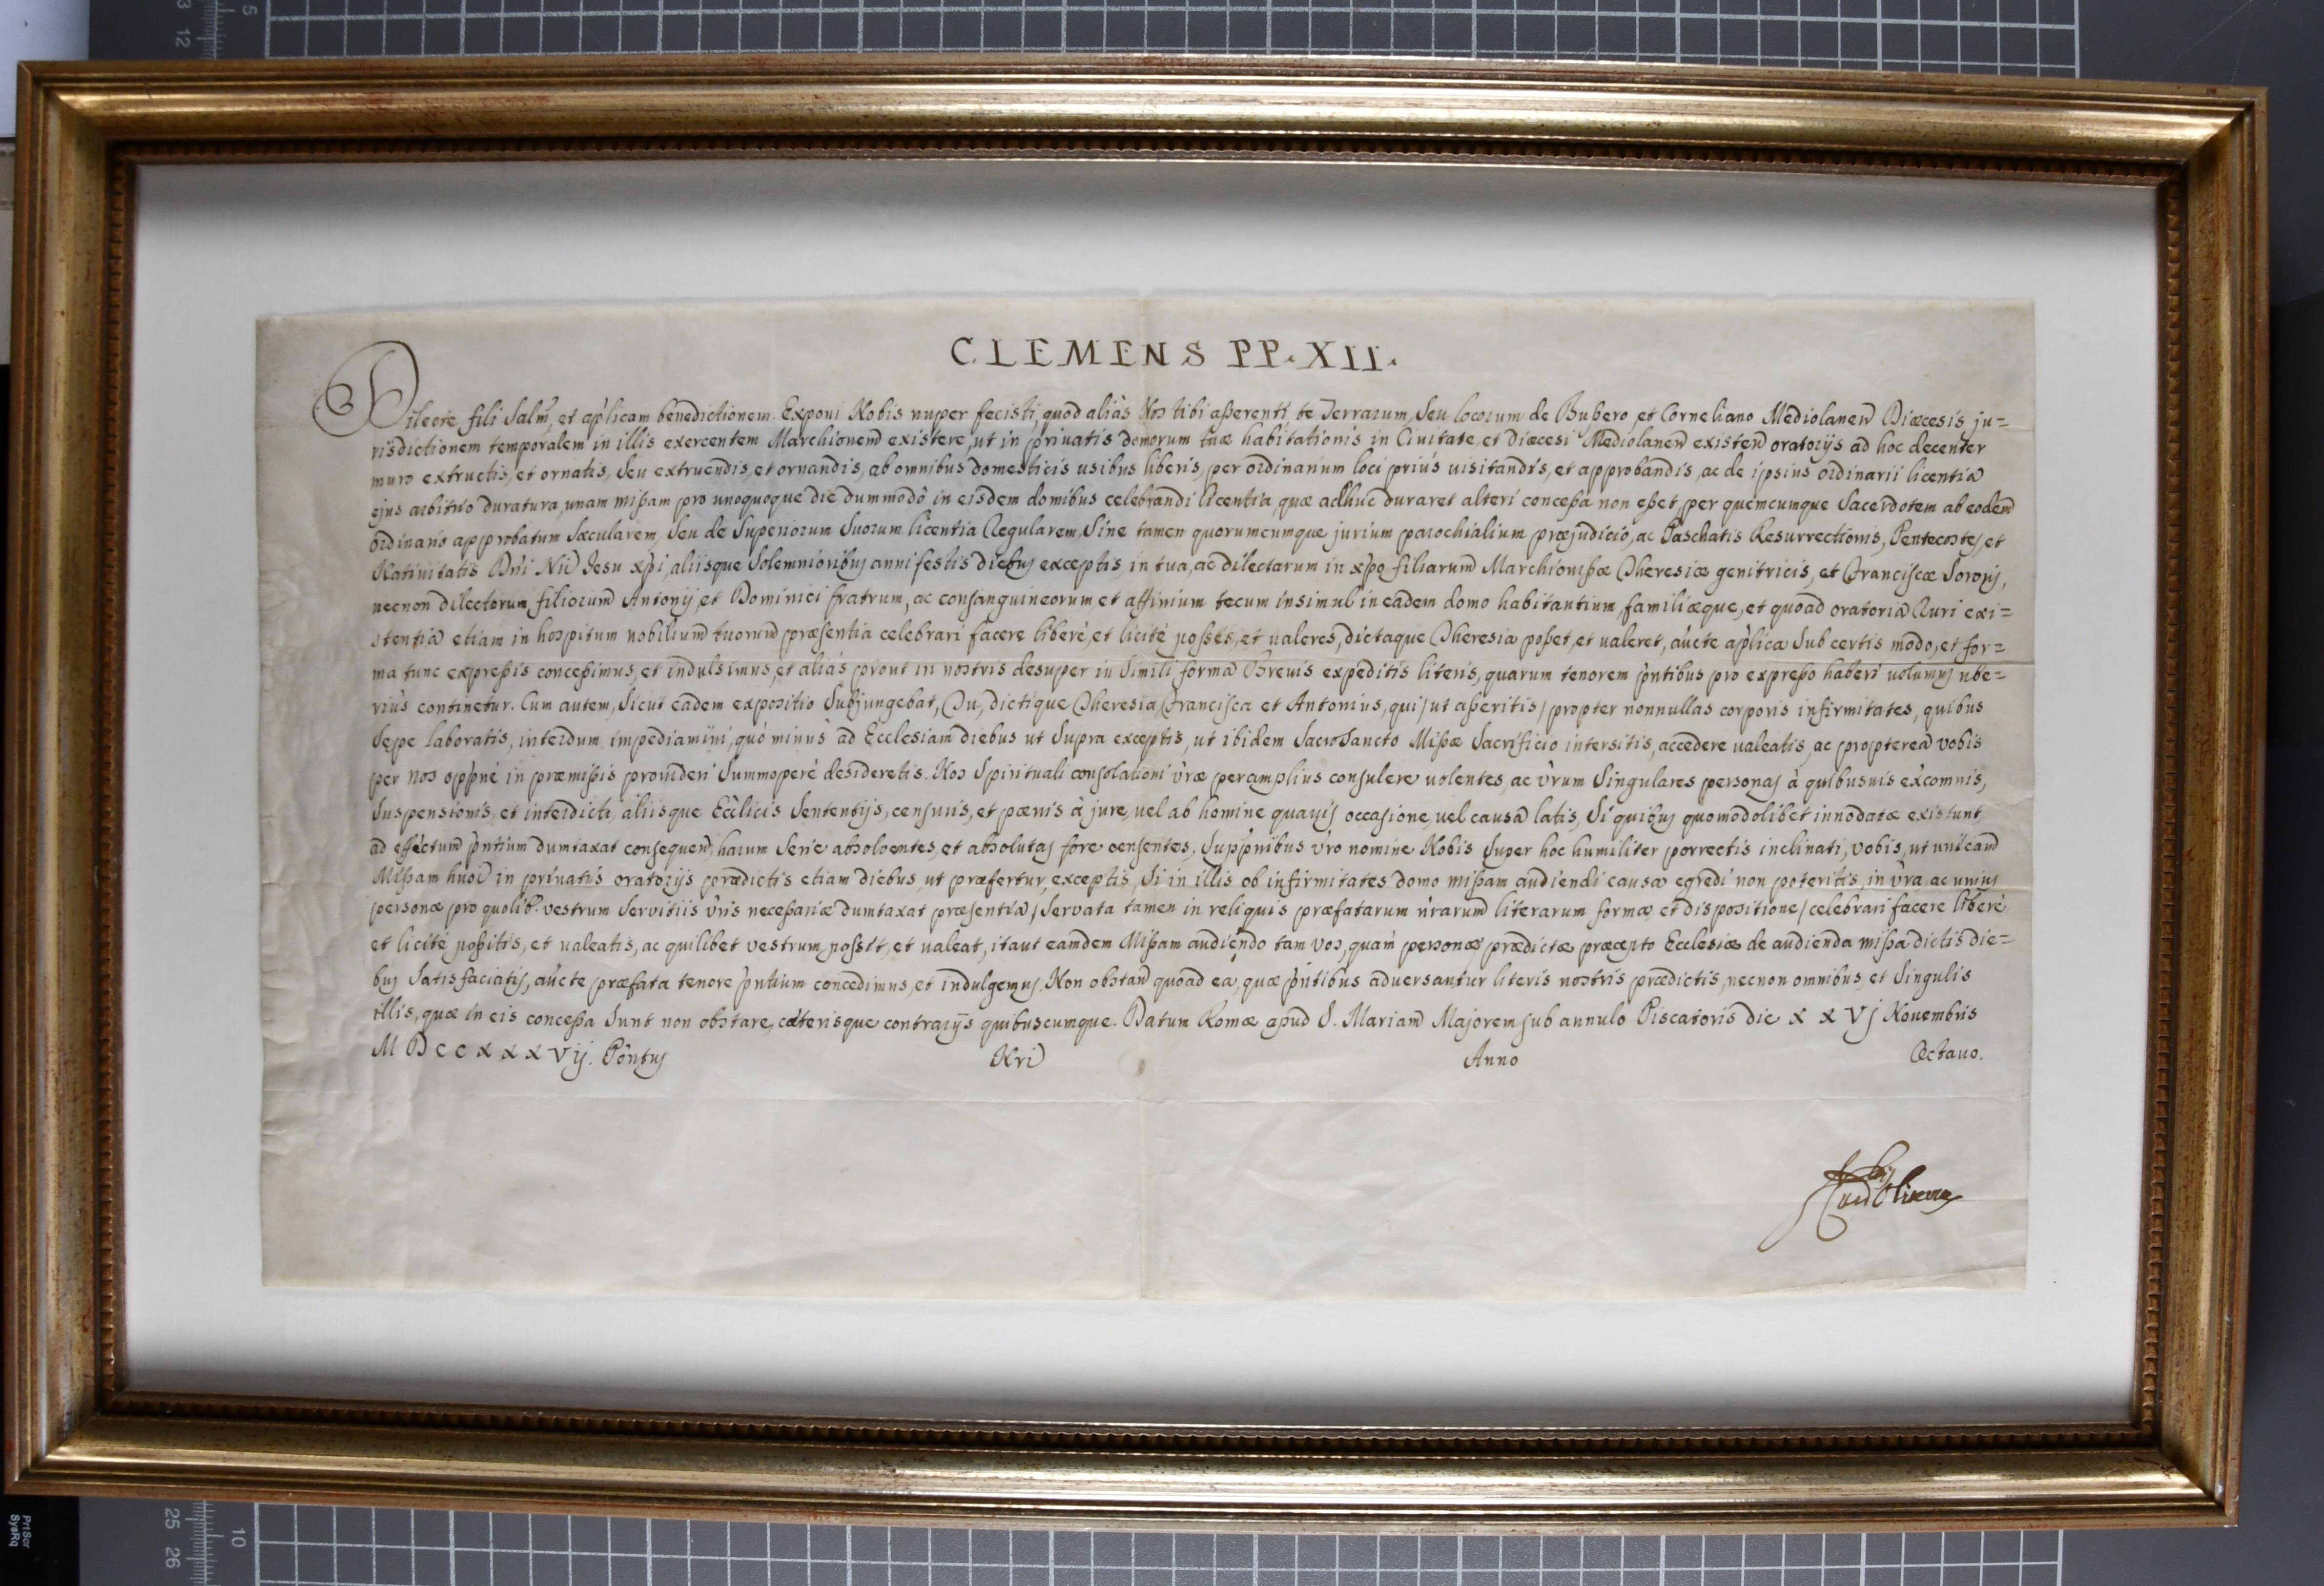 CLEMENS PP. XII.
Dilecte fili Salm̃, et ap̃licam benedictionem. Exponi Nobis nuper fecisti, quod aliàs Nos tibi aßerenti te Terrarum, Seu locorum de Bußero, et Corneliano Mediolaneñ Diæcesis ju=
risdictionem temporalem in illis exercentem Marchionem existere, ut in priuatis domorum tuæ habitationis in Ciuitate, et Diæcesi Mediolaneñ existeñ oratorijs ad hoc decenter
muro extructis, et ornatis, Seu extruendis, et ornandis, ab omnibus domesticis usibus liberis, per ordinarium loci priùs uisitandis, et approbandis, ac de ipsius ordinarii licentia
ejus arbitrio duratura, unam mißam pro unoquoque die dummodò in eisdem domibus celebrandi licentia quæ adhuc duraret alteri conceßa non eßet, per quemcumque Sacerdotem ab eodem
ordinario approbatum Sæcularem, Seu de Superiorum Suorum licentia Regularem, Sine tamen quorumcumque jurium parochialium præjudicio, ac Paschatis Resurrectionis, Pentecostes, et
Natiuitatis Dñi Nři Jesu xp̃i, aliisque Solemnioribus anni festis diebus exceptis in tua, ac dilectarum in xp̃o filiarum Marchionißæ Theresiæ genitricis, et Franciscæ Sororis,
necnon dilectorum filiorum Antonij, et Dominici fratrum, ac consanguineorum, et affinium tecum insimul in eadem domo habitantium, familiæque, et quoad oratoria Ruri exi=
stentia etiam in hospitum nobilium tuorum præsentia celebrari facere liberè, et licitè poßes, et ualeres, dictaque Theresia poßet, et ualeret, aũcte ap̃lica Sub certis modo, et for=
ma tunc expreßis conceßimus, et indulsimus, et aliàs prout in nostris desuper in Simili forma Breuis expeditis literis, quarum tenorem p̃ntibus pro expreßo haberi uolumus ube=
riùs continetur. Cum autem, Sicut eadem expositio Subjungebat, Tu, dictique Theresia, Francisca et Antonius, qui / ut aßeritis / propter nonnullas corporis infirmitates, quibus
Sepe laboratis, interdum impediamini, quò minùs ad Ecclesiam diebus ut Supra exceptis, ut ibidem Sacrosancto Mißæ Sacrificio intersitis, accedere ualeatis, ac propterea vobis
per Nos opp̃nè in præmißis prouideri Summoperè desideretis. Nos Spirituali consolationi ṽræ peramplius consulere uolentes, ac ṽrum Singulares personas à quibusuis excomnis,
Suspensionis, et interdicti, aliisque Ecc̃licis Sententijs, censuris, et pœnis à jure, uel ab homine quauis occasione, uel causa latis, Si quibus quomodolibet innodatæ existunt,
ad effectum p̃ntium dumtaxat consequeñ, harum Serie absoluentes, et absolutas fore censentes, Supp̃nibus ṽro nomine Nobis Super hoc humiliter porrectis inclinati, vobis, ut unicam
Mißam hmõi in priuatis oratorijs prædictis etiam diebus, ut præfertur, exceptis, Si in illis ob infirmitates domo mißam audiendi causa egredi non poteritis, in ṽra, ac unius
personæ pro quolib.t vestrum Servitiis ṽris neceßariæ dumtaxat præsentia / Servata tamen in reliquis præfatarum ñrarum literarum forma, et dispositione / celebrari facere liberè
et licitè poßitis, et ualeatis, ac quilibet vestrum possit, et ualeat, itaut eamdem Mißam audiendo tam vos, quam personæ prædictæ præcepto Ecclesiæ de audienda mißa dictis die=
bus Satisfaciatis, aũcte præfata tenore p̃ntium concedimus, et indulgemus. Non obstañ quoad ea, quæ p̃ntibus aduersantur literis nostris prædictis, necnon omnibus, et Singulis
illis, quæ in eis conceßa Sunt non obstare, cæterisque contrarijs quibuscumque. Datum Romæ apud S. Mariam Majorem sub annulo Piscatoris die x x Vj Nouembris
M D c c x x x V ij. Pontus Nři Anno Octauo.
3
12
5
25
26
10
PrtScr
SysRq